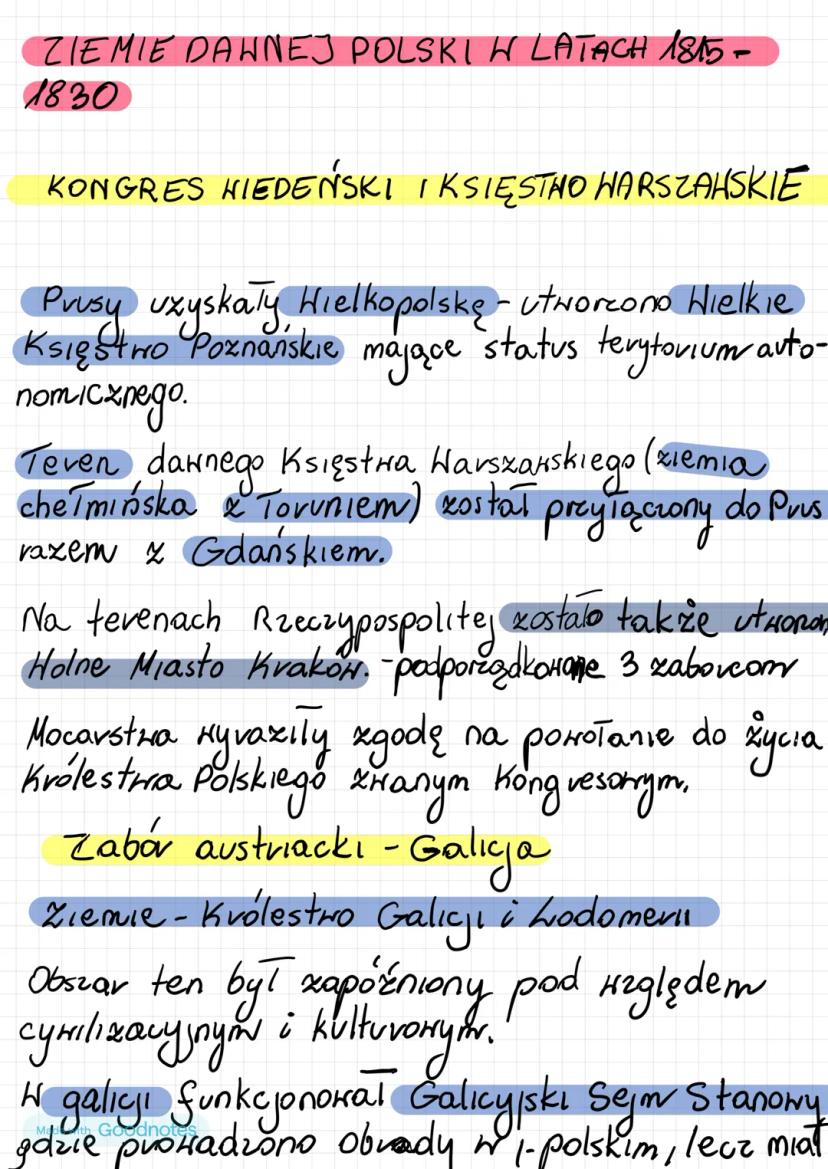 ZIEMIE DAWNEJ POLSKI W LATACH 1815-
1830
KONGRES WIEDEŃSKI I KSIĘSTWO WARSZAWSKIE
Prusy uzyskały Wielkopolskę - utworzono Wielkie
Księstwo Poznańskie mające status terytorium auto-
nomicznego.
Teren dawnego Księstwa Warszawskiego (ziemia
chełmińska z Toruniem) został przyłączony do Prus
razem z Gdańskiem.
Na terenach Rzeczypospolitej zostało także utworzon
Wolne Miasto Kraków. - podporządkowane 3 zaborcom
Mocarstwa wyraziły zgodę na powołanie do życia
Królestwa Polskiego zwanym Kongresowym.
Zabór austriacki - Galicja
Ziemie - Królestwo Galicji i Lodomerii
Obszar ten był zapóźniony pod względem
cywilizacyjnym i kulturowym.
W galicji funkcjonował Galicyjski Sejm Stanowy
Made with Goodnotes
gdzie prowadzono obrady w j. polskim, lecz miał